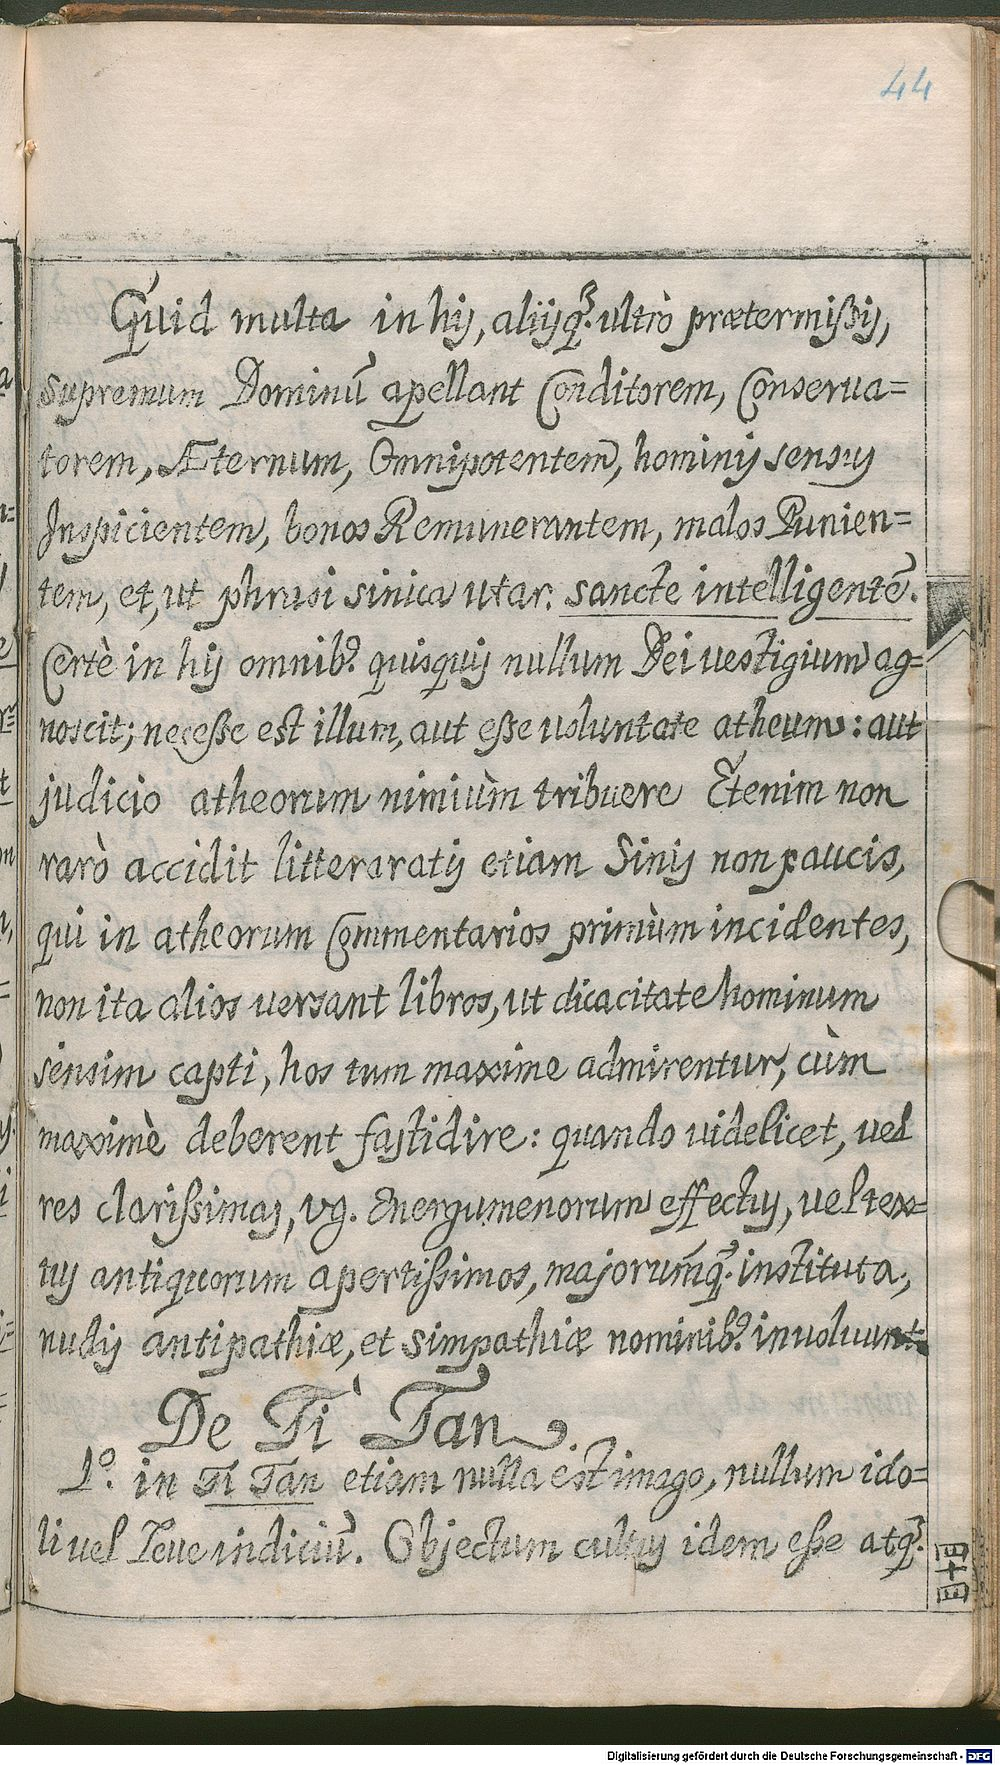 44
Quid multa in hij, aliijq̃. ultrò prætermißij,
supremum Dominũ apellant Conditorem, Conserua=
torem, Æternum, Omnipotentem, hominij sensij
Inspicientem, bonos Remunerantem, malos Punien=
tem, et, ut phrasi sinica utar. sancte intelligentẽ.
Certè in hij omnibꝰ. quisquij nullum Dei uestigium ag=
noscit; necesse est illum, aut esse uoluntate atheum: aut
judicio atheorum nimiùm tribuere Etenim non
rarò accidit litteraratij etiam Sinij non paucis,
qui in atheorum Commentarios primùm incidentes,
non ita alios uersant libros, ut dicacitate hominum
sensim capti, hos tum maxime admirentur, cùm
maximè deberent fastidire: quando uidelicet, uel
res clarißimas, vg. Energumenorum effectij, uel tex=
tij antiquorum apertißimos, majorum̃q̃. instituta,
nudij antipathiæ, et simpathiæ nominibꝰ. inuoluunt.
De Ti Tan.
1º. in Ti Tan etiam nulla est imago, nullum ido=
li uel leue indiciũ. Objectum cultij idem eße atq̃.
四十四
Digitalisierung gefördert durch die Deutsche Forschungsgemeinschaft - DFG